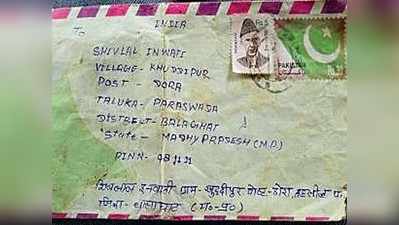 INDIA
To
SHIVLAL INWATI
VILLAGE - KHUDDIPUR
POST - DORA
TALUKA - PARASWADA
DISTRECT - BALAGHAT
State - MADHY PRADESH (M.P.)
PINN - 481121
शिवलाल इनवाती ग्राम - खुद्दीपुर पोस्ट - डोरा, तहसील प
जिला - बालाघाट (म०-प्र०)
PAKISTAN